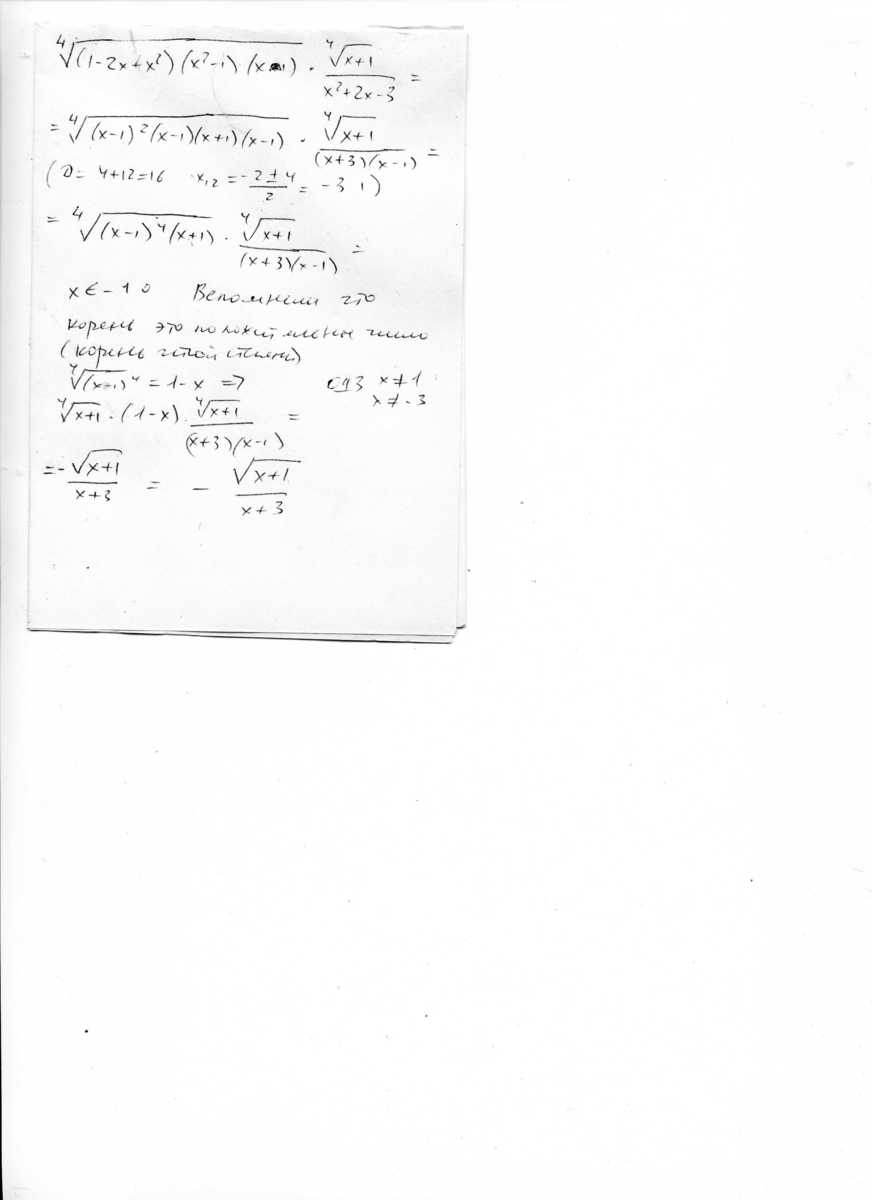 ⁴√((1-2x+x²)(x²-1)(x-1)) · ⁴√(x+1)/(x²+2x-3) =
= ⁴√((x-1)²(x-1)(x+1)(x-1)) · ⁴√(x+1)/((x+3)(x-1)) =
(D = 4+12=16 x₁,₂ = (-2±4)/2 = -3 1)
= ⁴√((x-1)⁴(x+1)) · ⁴√(x+1)/((x+3)(x-1)) =
x ∈ -1 0 Вспомним что
корень это положительное число
(корень четной степени)
⁴√(x-1)⁴ = 1-x => ОДЗ x≠1
x≠-3
⁴√(x+1) · (1-x) · ⁴√(x+1)/((x+3)(x-1)) =
= -√(x+1)/(x+3) = - √(x+1)/(x+3)